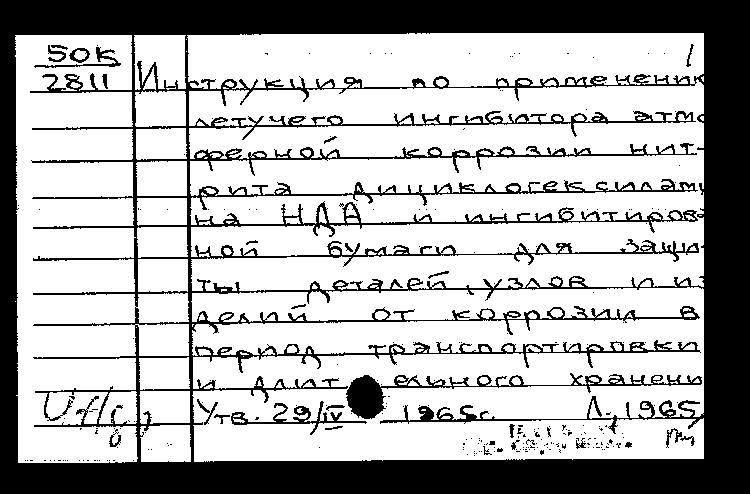 50К 1
2811 Инструкция по применению
летучего ингибитора атмо
ферной коррозии нит-
рита дициклогексилами
на НДА и ингибитиров-
ной бумаги для защи-
ты деталей, узлов и из
делий от коррозии в
период транспортировки
и длительного хранени
Утв. 29/IV 1965г. Л., 1965